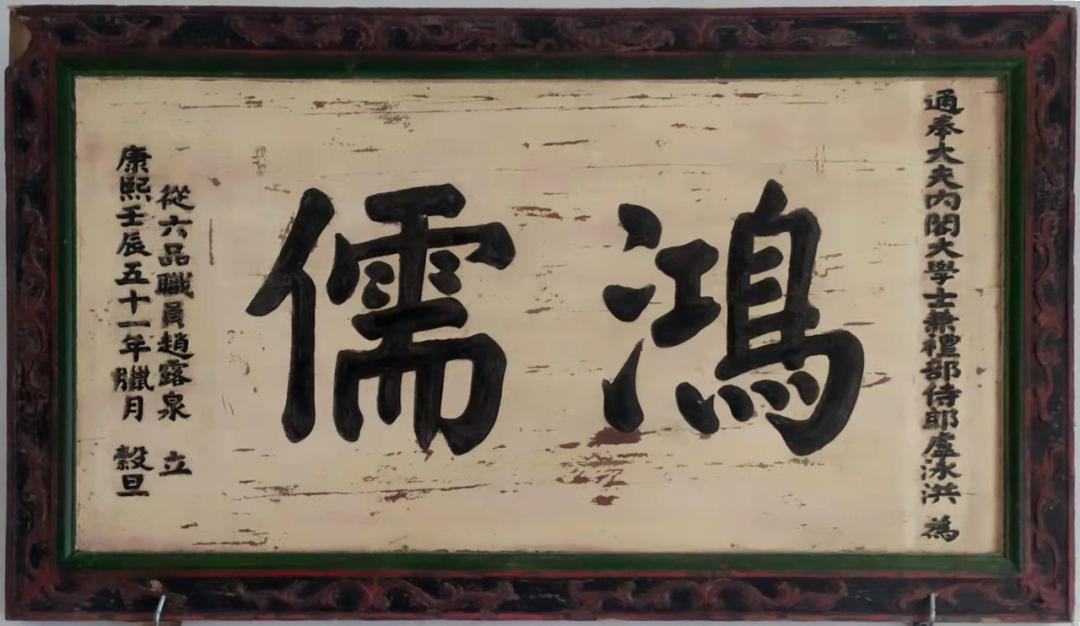 通奉大夫内閣大學士兼禮部侍郎盧泳洪 為
鴻儒
從六品職員趙露泉 立
康熙壬辰五十一年臘月 穀旦